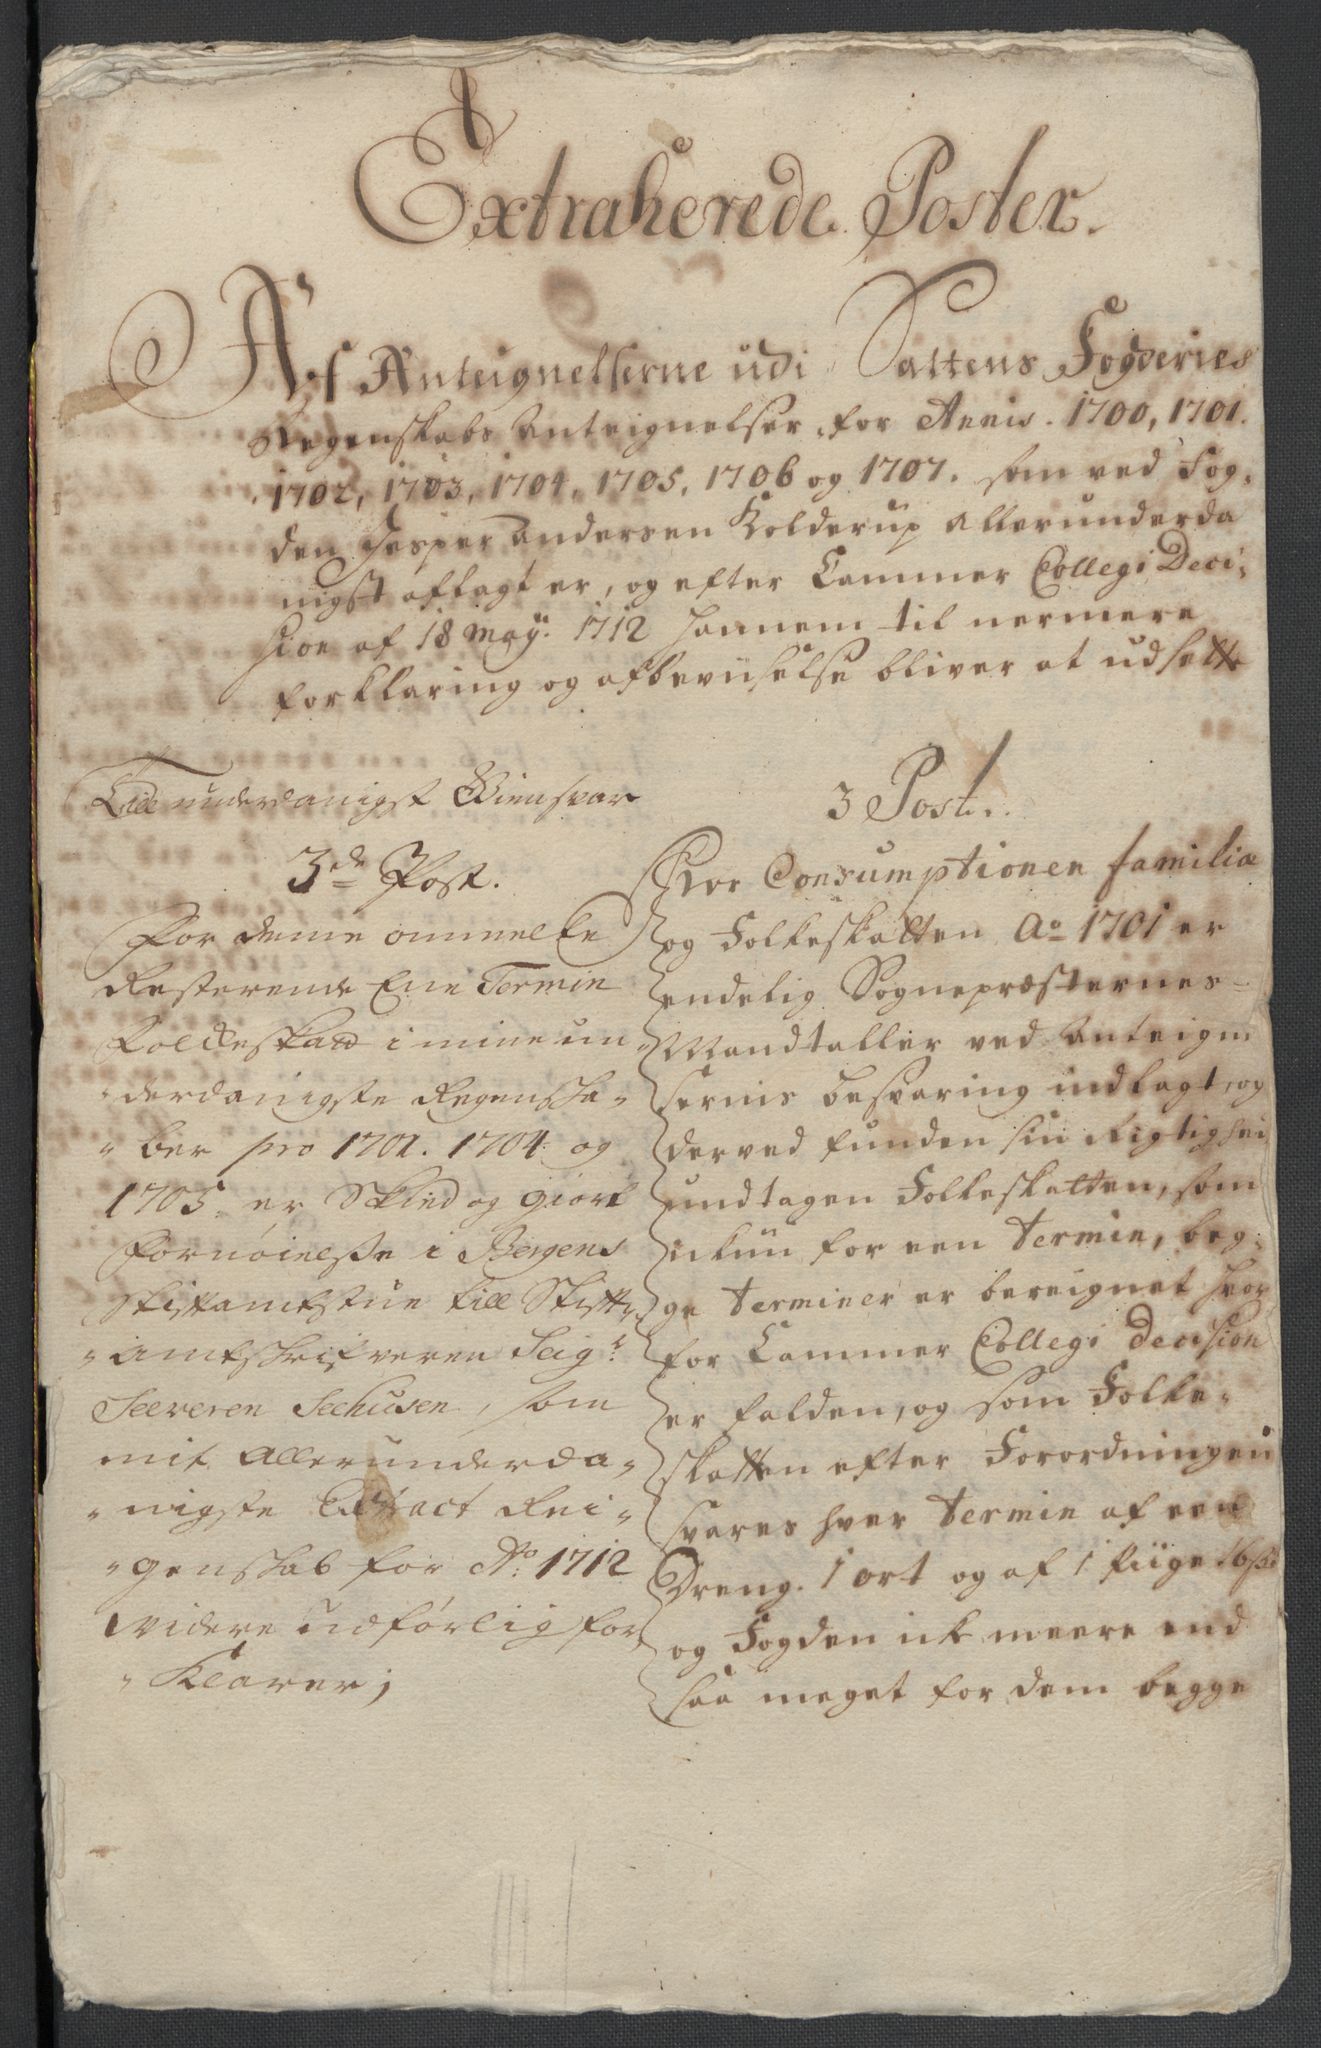 Extraherede Poster.
Af Anteignelserne udi Saltens Fogderies
Regenskabs Anteignelser, for Annis. 1700, 1701.
1702, 1703, 1704, 1705, 1706 og 1707. som ved Fog,
den Jesper Andersen Holderup allerunderda
nigst aflagt er, og efter Cammer Collegi Deci,
sion af 18 Maÿ. 1712 hannem til nermere
forklaring og afbeviiselse bliver at udsette
Till underdanigst Giensvar
3de Post.
For denne ommelte
Resterende Een Termin
Folkeskatt i mine un-
derdanigste Regenska-
ber pro 1701. 1704 og
1705. er Skeed og giort
Fornøielse i Bergens
Stiftamtstue till Stifts
amtskrifveren Seigr.
Severen Seehusen, som
mit Allerunderda-
nigste Extract Rei-
genskab for Ao. 1712
videre udførlig for
Klarer;
3 Post.
Hvor Consumptionen familiæ
og Folkeskatten Ao 1701 er
endelig Sognepræsternes
Mandtaller ved Anteign
sernis besvaring indlagt, og
derved funden sin Rigtighed
undtagen Folkeskatten, som
ickun for een Termin, beg,
ge Terminer er bereignet hvor
for Cammer Collegi Decision
er falden, og som Folke,
skatten efter Forordningen
svares hver Termin af een
Dreng. 1 ort og af 1 Piige 16 sk
og Fogden ick meere end
saa meget for dem begge